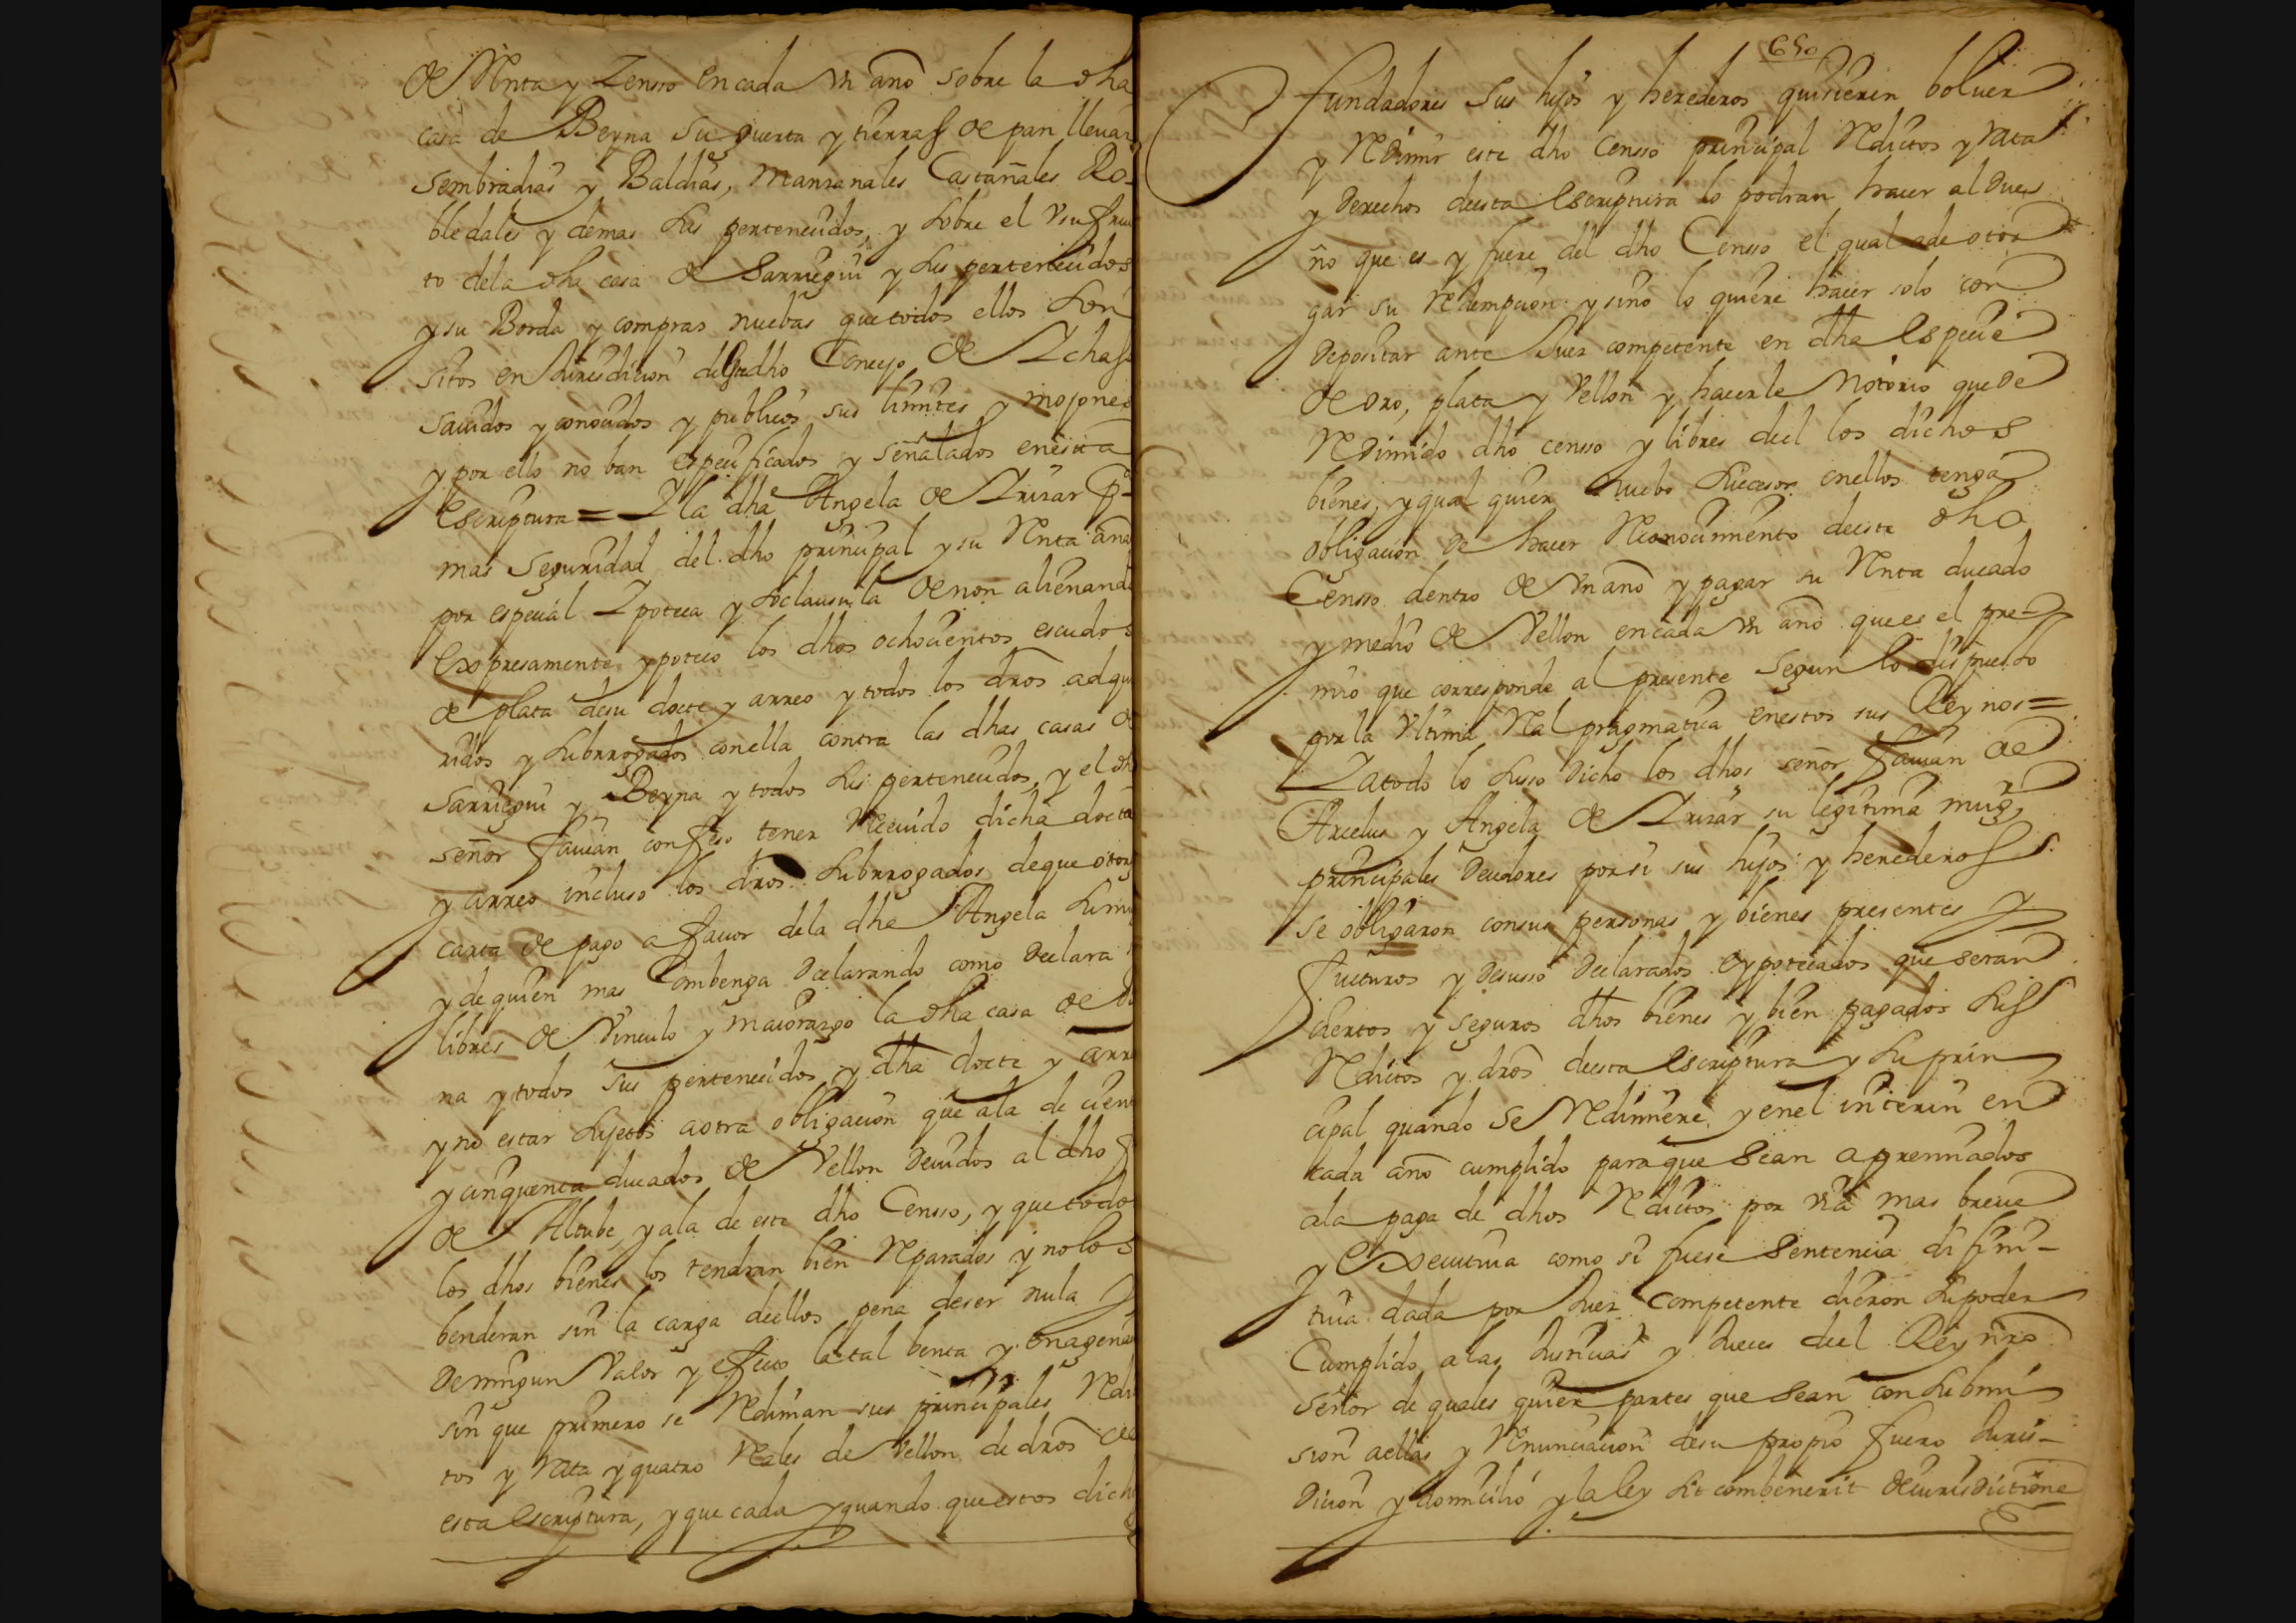 de Renta y Zenso en cada Un año sobre la dha
casa de Beyna su guerta y tierras de pan lleuar
sembradias y Baldias, Manzanales Castañales Ro-
bledales y demas sus pertenecidos, y sobre el Vsufru
to dela dha casa de Sarriegui y sus pertenecidos
y su Borda y compras nuebas que todos ellos son
sitos en Jurisdicion del dho Concejo de
sauidos y conocidos y publicos sus limites y mojones
y por ello no ban especificados y señalados en esta
escriptura = Y la dha Angela de Yrizar pa
mas seguridad del dho principal y su Renta ana
por especial Ypoteca y so clausula de non alienand
expresamente ypoteco los dhos ochocientos escudos
de plata desu docte y arreo y todos los dros adqui
ridos y subrrogados conella contra las dhas casas de
Sarriegui y Beyna y todos sus pertenecidos, y el dh
señor Fauian confeso tener Receuido dicha docte
y arreo incluso los dros subrrogados de que otorg
carta de pago a fauor dela dha Angela su mu
y de quien mas Combenga Declarando como Declara
libres de Vinculo y maiorazgo la dha casa de Be
na y todos sus pertenecidos y dha docte y arre
y no estar sujetos aotra obligacion que ala de cien
y cinquenta ducados de Vellon Deuidos al dho
de Altube, y ala de este dho Censso, y que todo
los dhos bienes los tendran bien Reparados y nolos
benderan sin la carga dellos pena deser nula y
De ningun Valor y efecto la tal benta y enagena
sin que primero se Rediman sus principales Redi
tos y rata y quatro Reales de Vellon de dros de
esta escriptura, y que cada y quando que estos dich
650
fundadores sus hijos y herederos quisieren boluer
y Redimir este dho Censso principal Redictos y rata
y Derechos deesta escriptura lo podran hacer al Due
ño que es y fuere del dho Censso el qual ade otor
gar su Redempcion y sino lo quiere hacer solo con
Depositar ante Juez competente en dha especie
de oro, plata y Vellon y hacerle Notorio quede
Redimido dho censso y libres deel los dichos
bienes, y qual quier nuebo subcesor enellos tenga
obligacion de hacer Reconocimiento deeste dho
Censso dentro de Un año y pagar su Renta ducado
y medio de Vellon en cada Un año que es el pre-
mio que corresponde al presente segun lo dispuesto
por la Vltima Real pragmatica enestos sus Reynos =
Y atodo lo susso Dicho los dhos señor Fauian de
Arcelus y Angela de Yrizar su legitima muger
principales Deudores por si sus hijos y herederos
se obligaron consus personas y bienes presentes y
fucturos y Desusso Declarados eypotecados que seran
ciertos y seguros dhos bienes y bien pagados sus
Redictos y dros deesta escriptura y su prin
cipal quando se Redimiere, y enel interin en
cada año cumplido para que sean apremiados
ala paga de dhos Redictos por via mas breue
y executiua como si fuese Sentencia difini-
tiua dada por Juez Competente dieron su poder
Cumplido alas Justicias y Jueces deel Rey nro
señor de quales quier partes que sean con su bmi
sion aellas y Renunciacion desu propio fuero Juris-
dicion y domicilio y la ley sit combenerit de iurisdictione